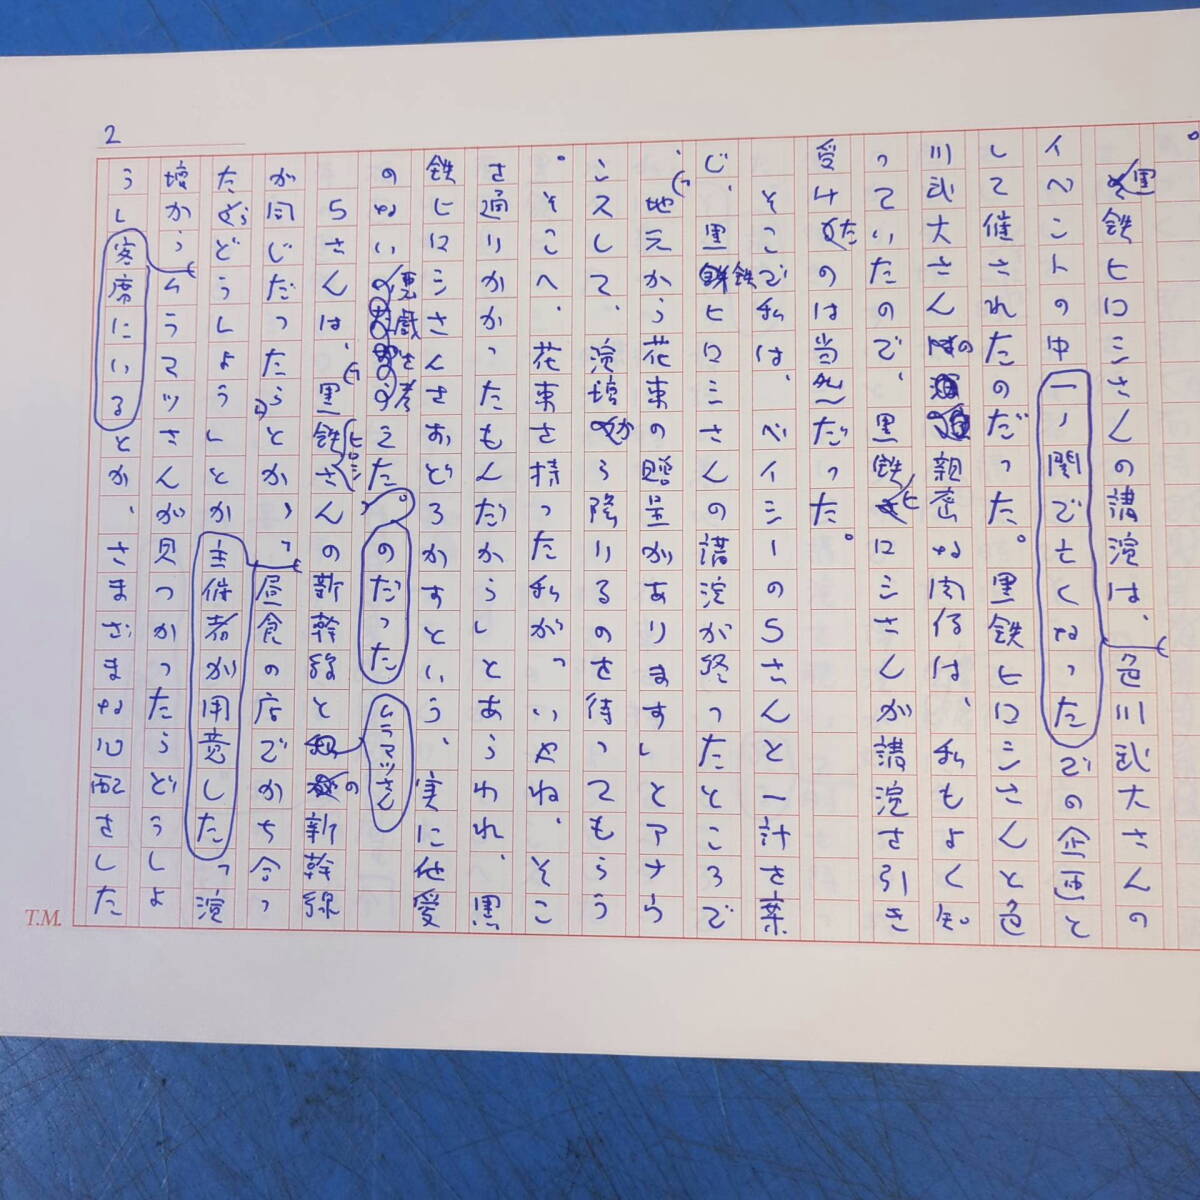 2
黒鉄ヒロシさんの講演は、色川武大さんの
イベントの中一ノ関でもくわったでの企画と
して催されたのだった。黒鉄ヒロシさんと色
川武大さんの親密な関係は、私もよく知
っていたので、黒鉄ヒロシさんが講演を引き
受けたのは当然だった。
そこで私は、ベイシーのSさんと一計を案
じ、黒鉄ヒロシさんの講演が終ったところで
、「地元から花束の贈呈があります」とアナウ
ンスして、演壇から降りるのを待ってもらう
。そこへ、花束を持った私が「いやね、そこ
を通りかかったもんだから」とあらわれ、黒
鉄ヒロシさんをおどろかすという、実に他愛
のない悪戯を考えたのだった。
ムラマツさん
Sさんは、「黒鉄ヒロシさんの新幹線との新幹線
が同じだったら」とか、「昼食の店でかち合っ
たらどうしよう」とか主催者が用意した「演
壇からムラマツさんが見つかったらどうしよ
う」客席にいるとか、さまざまな心配をした
T.M.